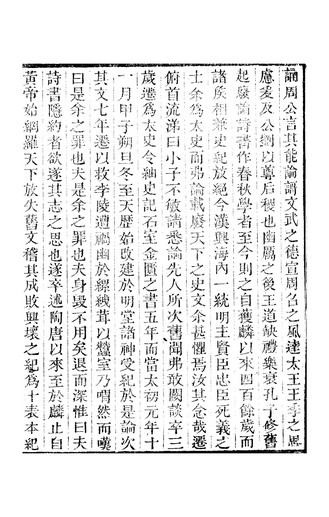 誦周公言其能論謌文武之德宣周召之風達太王王季之思
慮爰及公劉以尊后稷也幽厲之後王道缺禮樂衰孔子修舊
起廢論詩書作春秋學者至今則之自獲麟以來四百餘歲而
諸矦相兼史紀放絕今漢興海內一統明主賢臣忠臣死義之
士余為太史而弗論載廢天下之史文余甚懼焉汝其念哉遷
俯首流涕曰小子不敏請悉論先人所次舊聞弗敢闕談卒三
歲遷為太史令紬史記石室金匱之書五年而當太初元年十
一月甲子朔旦冬至天歷始改建於明堂諸神受紀於是論次
其文七年遷以救李陵遭禍幽於縲紲茸以蠶室乃喟然而嘆
曰是余之罪也夫是余之罪也夫身毀不用矣退而深惟曰夫
詩書隱約者欲遂其志之思也遂卒述陶唐以來至於麟止自
黃帝始網羅天下放失舊文稽其成敗興壞之紀為十表本紀